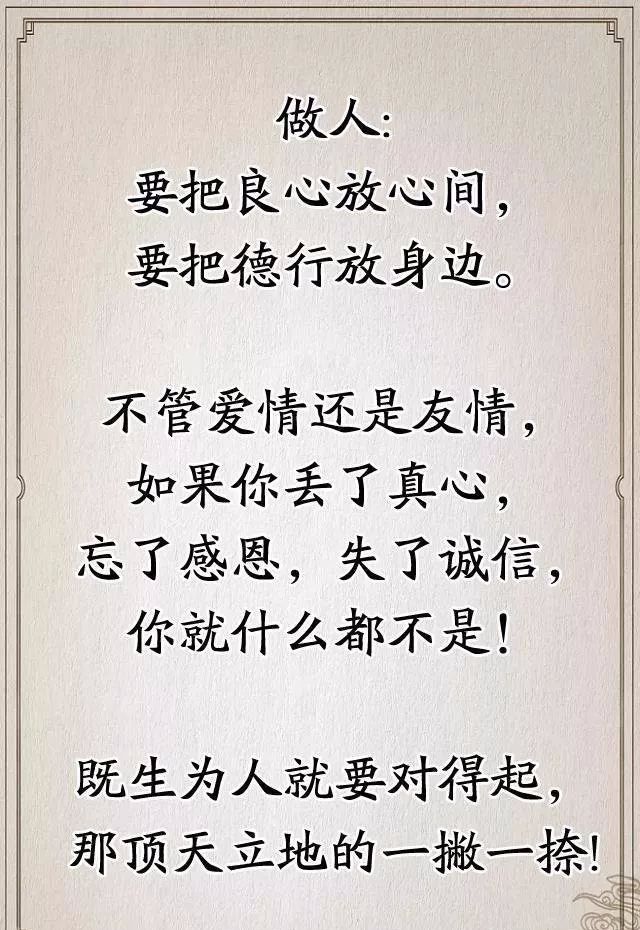 做人:
要把良心放心间，
要把德行放身边。
不管爱情还是友情，
如果你丢了真心，
忘了感恩，失了诚信，
你就什么都不是！
既生为人就要对得起，
那顶天立地的一撇一捺!